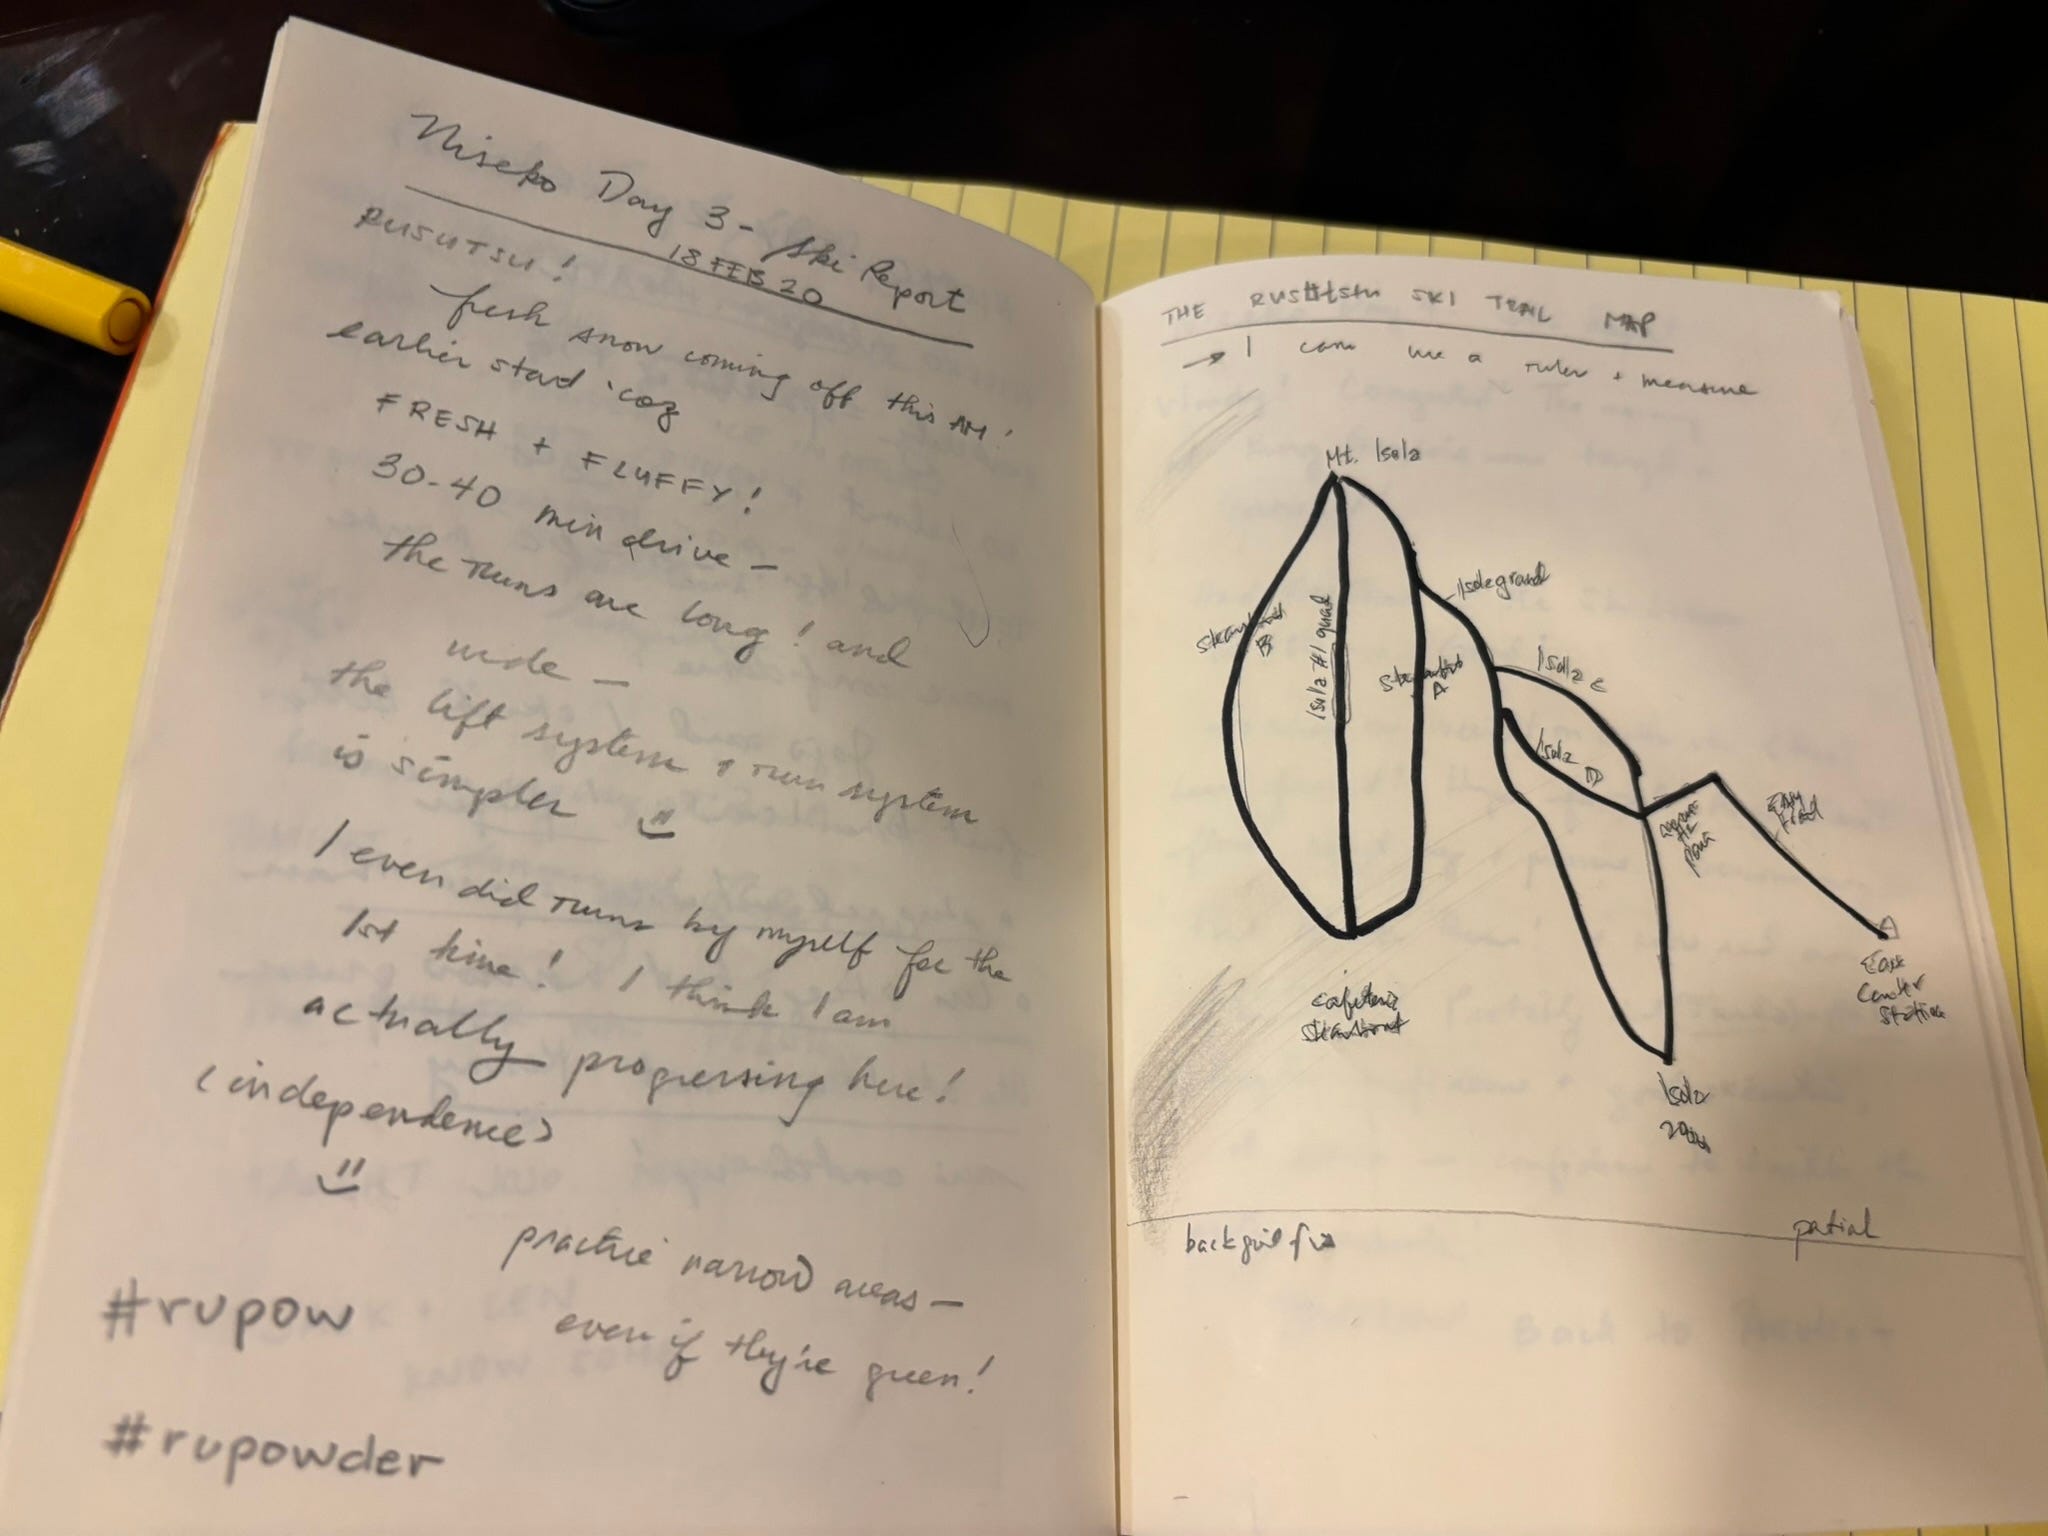 Niseko Day 3 - Ski Report
18 FEB 20
RUSUTSU!
fresh snow coming off this AM!
earlier start 'coz
FRESH + FLUFFY!
30-40 min drive —
the runs are long! and
wide —
the lift system + run system
is simpler
I even did runs by myself for the
1st time! I think I am
actually progressing here!
(independence)
practice narrow areas —
even if they're green!
#rupow
#rupowder
THE RUSUTSU SKI TRAIL MAP
→ I can use a ruler + measure
Mt. Isola
Isola grand
Steamboat
B
Isola #1 quad
Steamboat
A
Isola C
Isola D
Easy
Trail
cafeteria
steamboat
East
Center
Station
Isola
partial